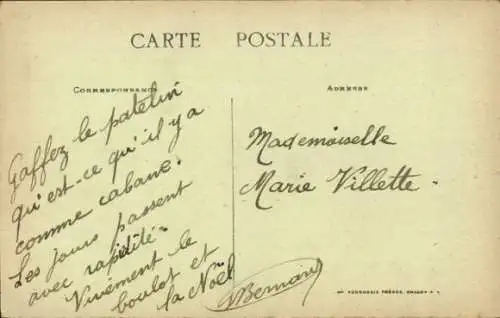 CARTE POSTALE
CORRESPONDANCE
ADRESSE
Gaffez le patelin
qu'est-ce qu'il y a
comme cabane.
Les jours passent
avec rapidité.
Vivement le
boulot et
la Noël
Bernard
Mademoiselle
Marie Villette.
FRÈRES,